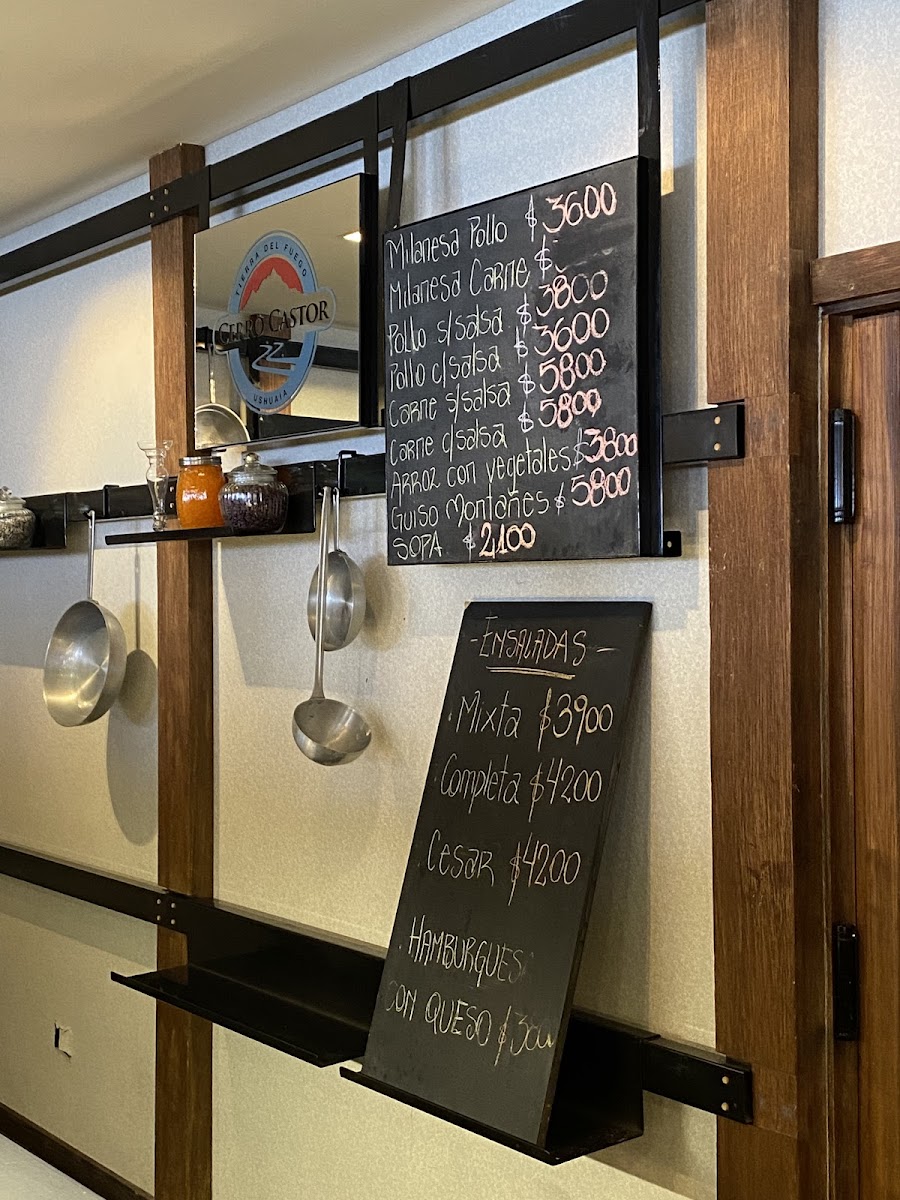 TIERRA DEL FUEGO
CERRO CASTOR
USHUAIA
Milanesa Pollo $ 3600
Milanesa Carne $
Pollo s/salsa $ 3800
Pollo c/salsa $ 3600
Carne s/salsa $ 5800
Carne c/salsa $ 5800
Arroz con vegetales $ 3800
Guiso Montañes $ 5800
SOPA $ 2100
- ENSALADAS -
. Mixta $3900
. Completa $4200
. Cesar $4200
. HAMBURGUES
CON QUESO